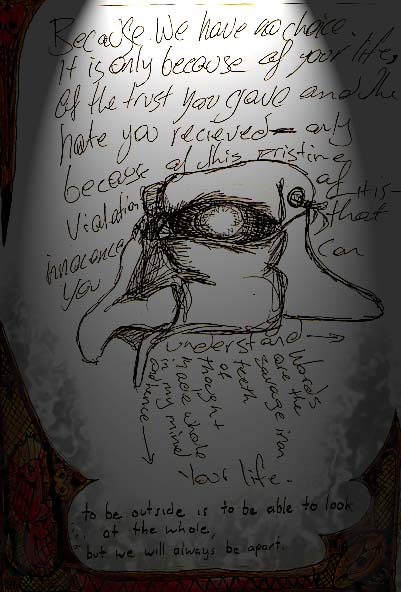 Because We have no choice.
It is only because of your life,
of the trust you gave and the
hate you recieved - only
because of this pristine
Violation of it is-
innocence that
You can
understand →
Words
are the
savage iron
teeth
of
thought
made whole
in my mind
→
Your life.
to be outside is to be able to look
at the whole,
but we will always be apart.